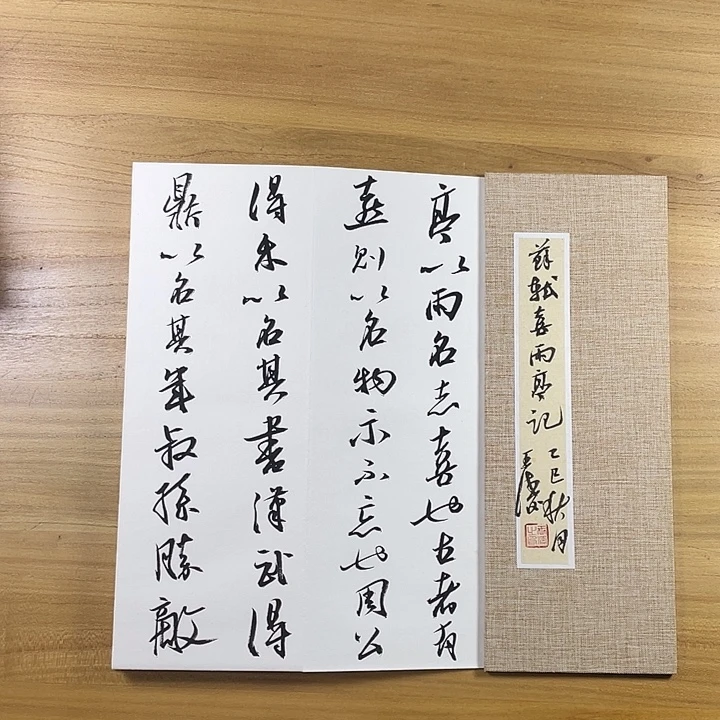 蘇軾喜雨亭記
乙巳秋月
亭以雨名志喜也古者有
喜则以名物示不忘也周公
得禾以名其書漢武得
鼎以名其年叔孫勝敵